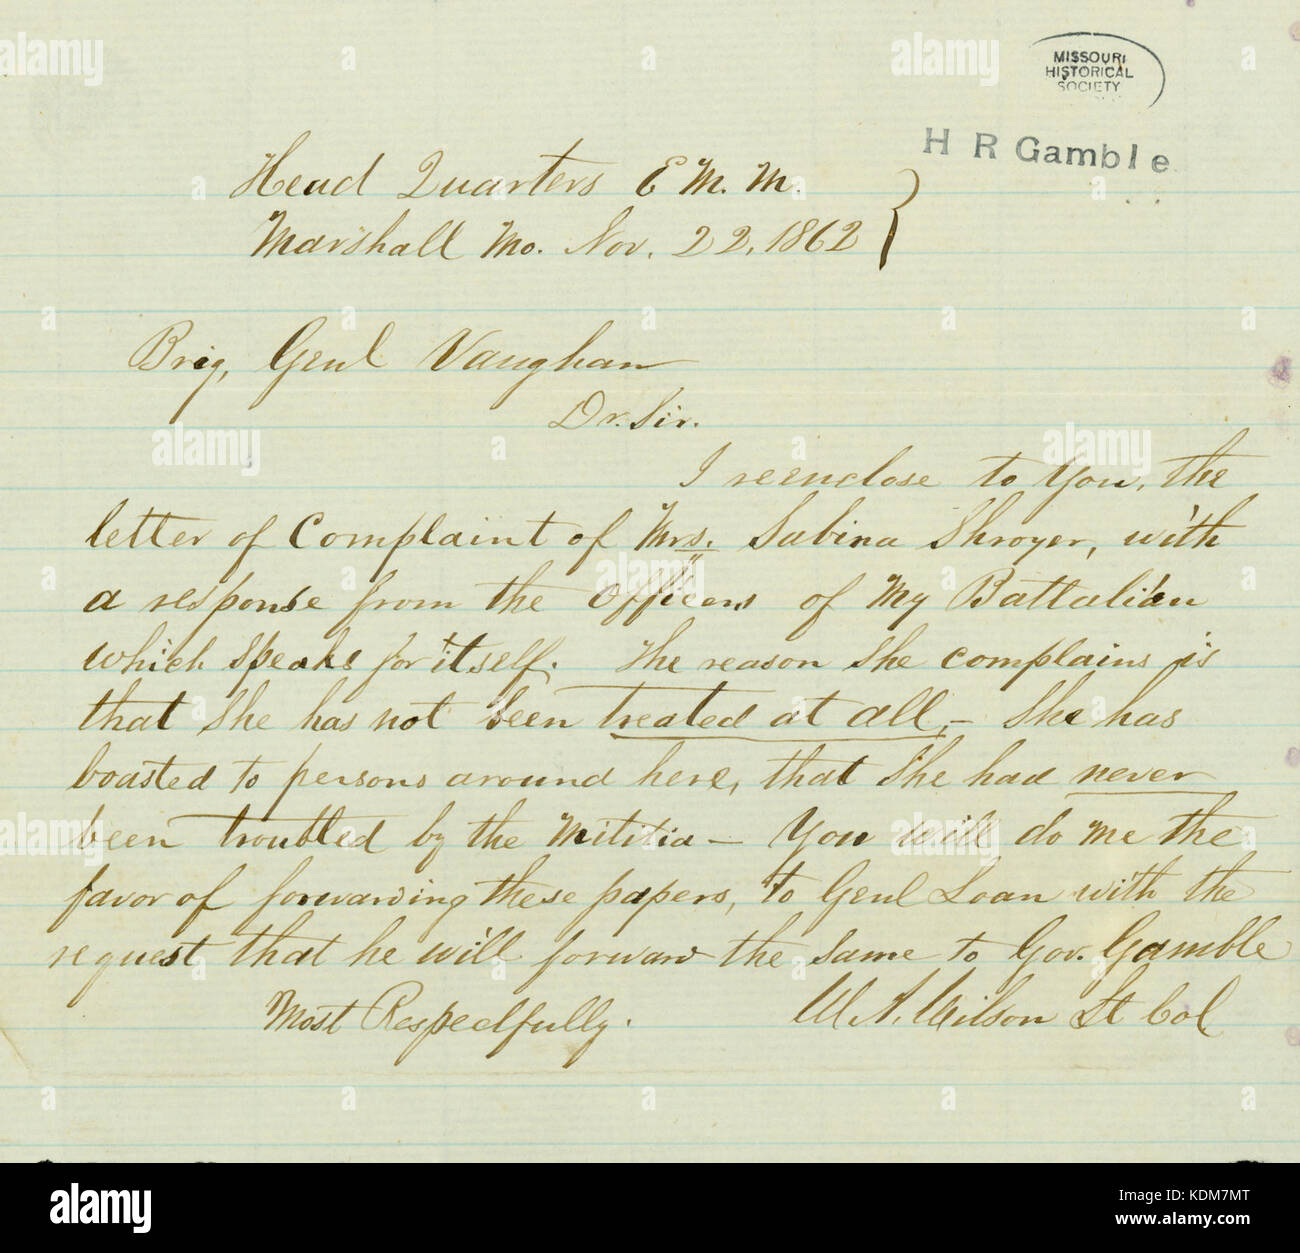 MISSOURI
HISTORICAL
SOCIETY
H R Gamble
Head Quarters E M. M.
Marshall Mo. Nov. 22, 1862
Brig, Genl Vaughan
Dr. Sir.
I reenclose to You, the
letter of Complaint of Mrs. Sabina Shroyer, with
a response from the officers of My Battalian
which speaks for itself. The reason She complains is
that She has not been treated at all, – She has
boasted to persons around here, that She had never
been troubled by the Militia – You will do me the
favor of forwarding these papers, to Genl Loan with the
request that he will forward the same to Gov. Gamble
Most Respectfully. W. A. Wilson Lt Col
alamy
a
Image ID: KDM7MT
www.alamy.com